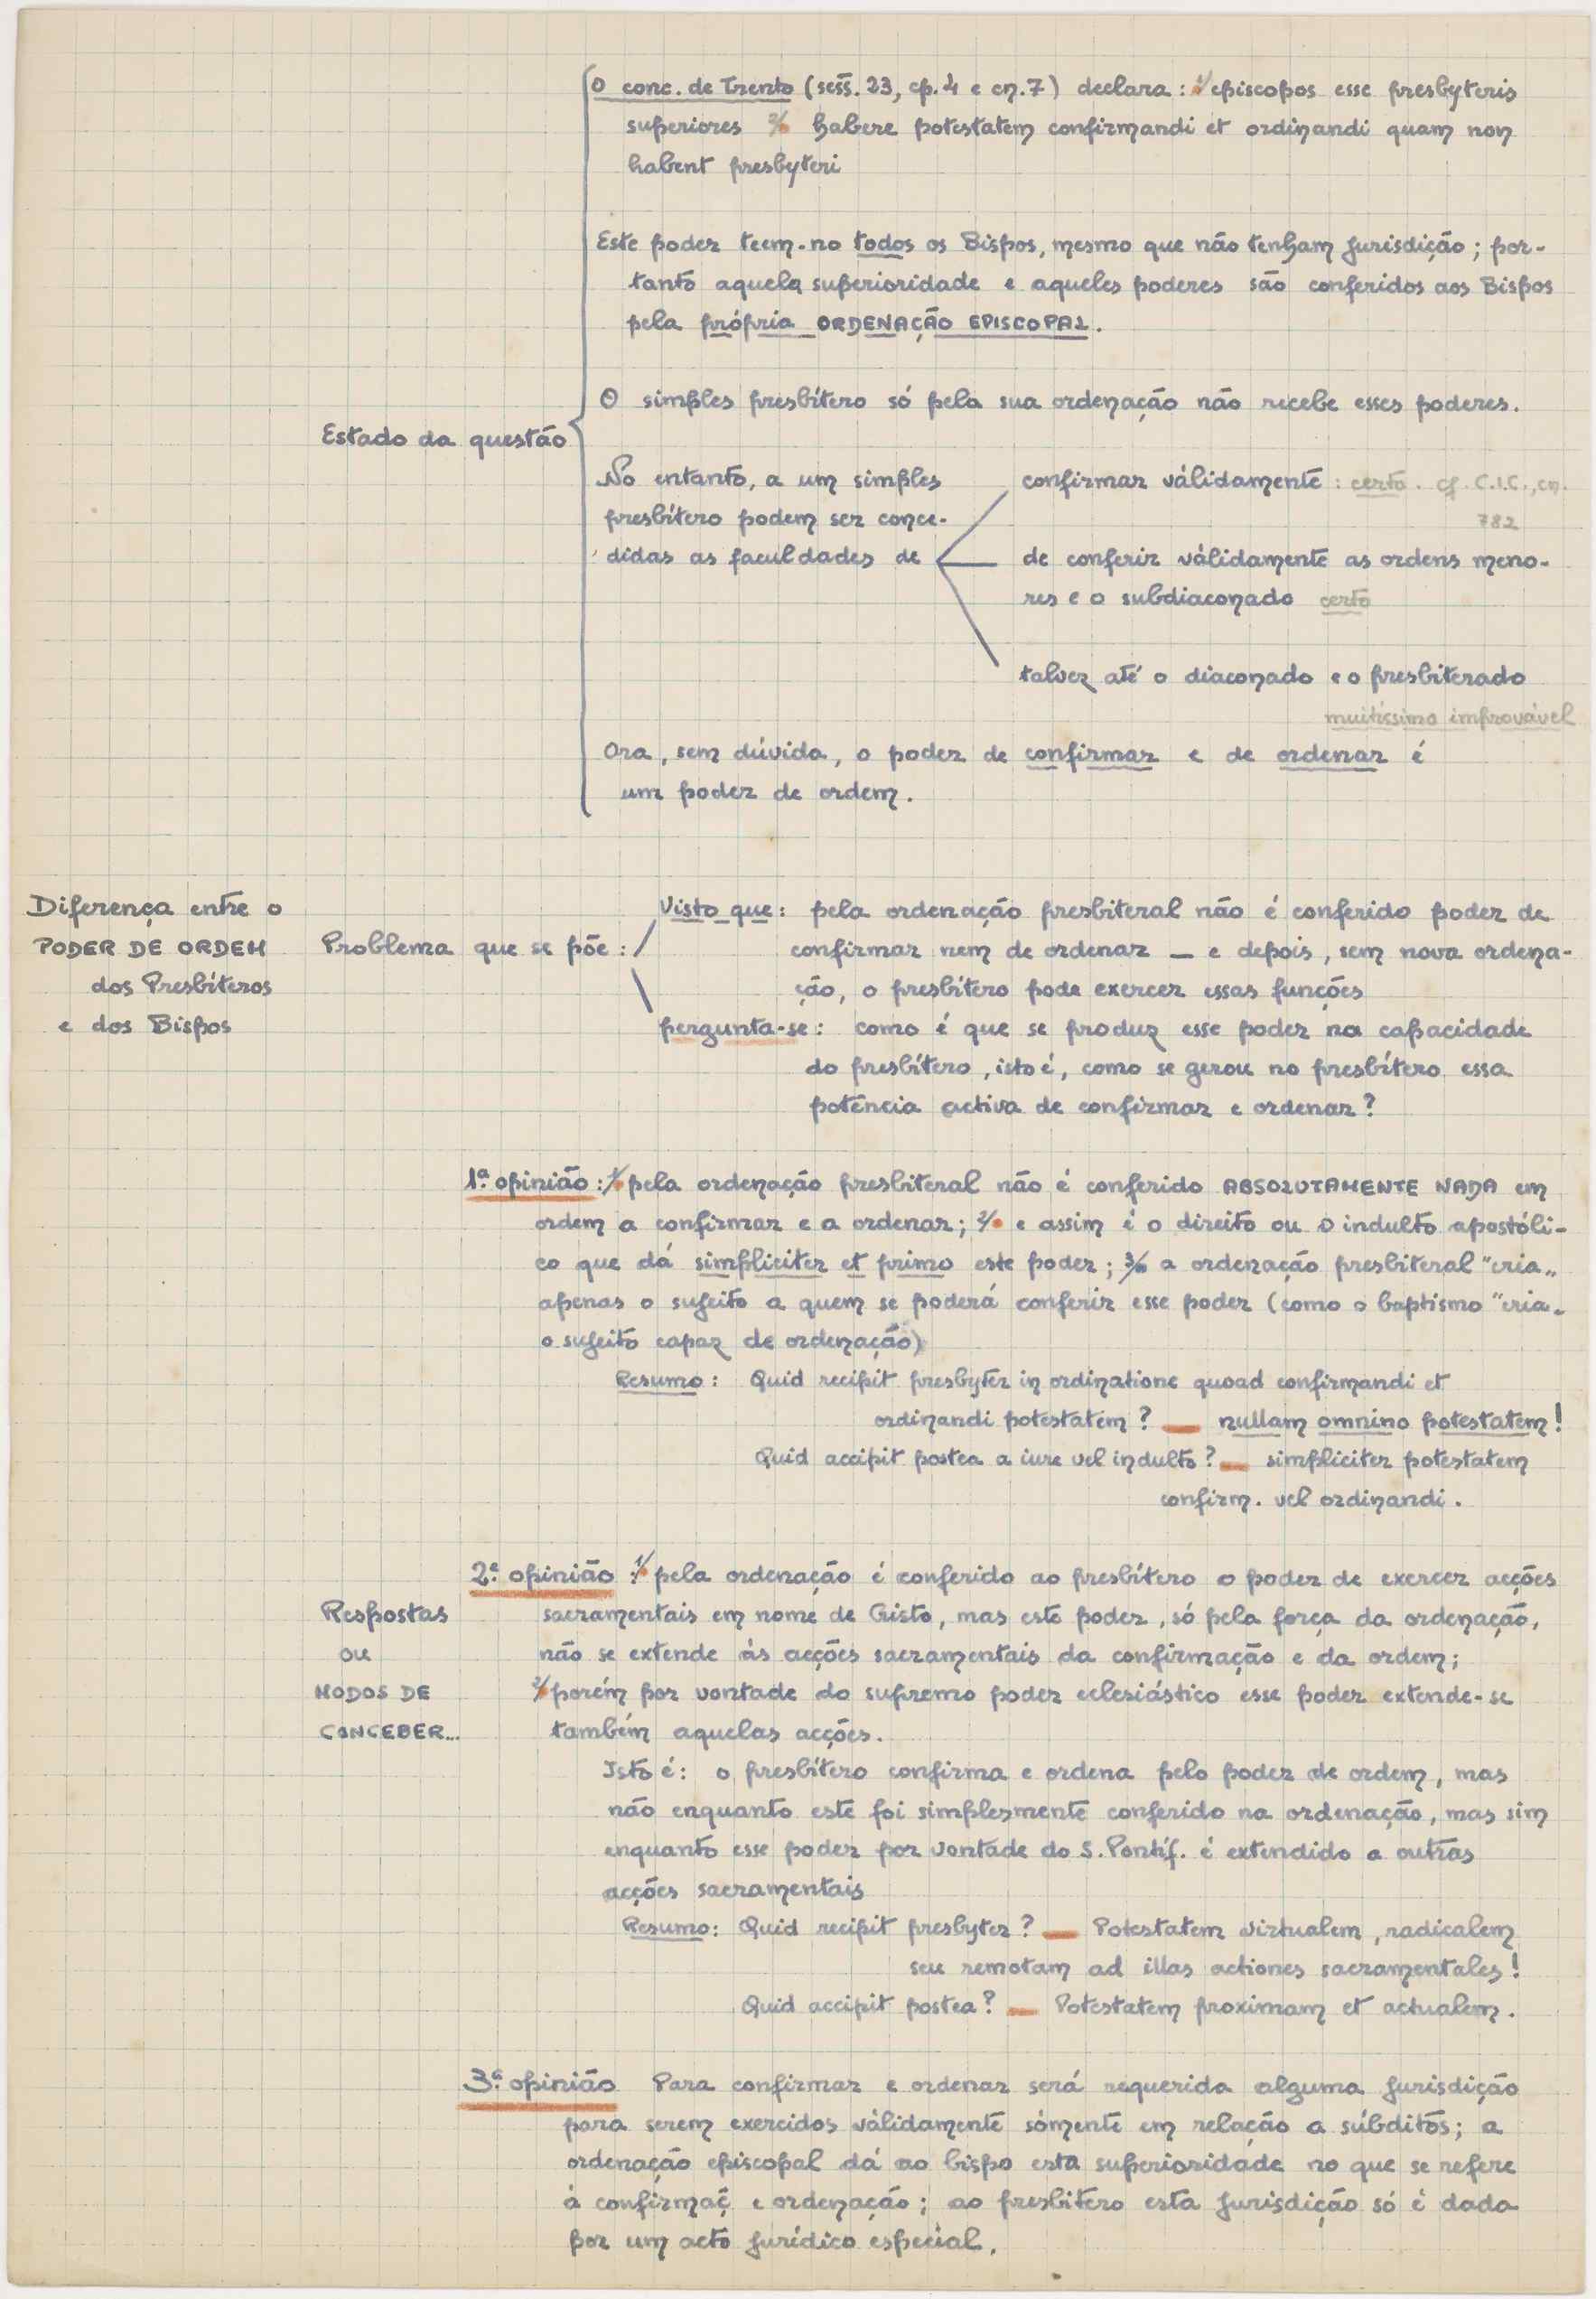 O conc. de Trento (sess. 23, cp. 4 e cn. 7) declara : 1/ episcopos esse presbyteris
superiores 2/ habere potestatem confirmandi et ordinandi quam non
habent presbyteri
Este poder teem-no todos os Bispos, mesmo que não tenham jurisdição ; por-
tanto aquela superioridade e aqueles poderes são conferidos aos Bispos
pela própria ORDENAÇÃO EPISCOPAL.
O simples presbítero só pela sua ordenação não recebe esses poderes.
Estado da questão
No entanto, a um simples
presbítero podem ser conce-
didas as faculdades de
confirmar válidamente : certo. cf. C.I.C., cn.
782
de conferir válidamente as ordens meno-
res e o subdiaconado certo
talvez até o diaconado e o presbiterado
muitíssimo improvável
Ora, sem dúvida, o poder de confirmar e de ordenar é
um poder de ordem.
Diferença entre o
PODER DE ORDEM
dos Presbíteros
e dos Bispos
Problema que se põe :
Visto que : pela ordenação presbiteral não é conferido poder de
confirmar nem de ordenar — e depois, sem nova ordena-
ção, o presbítero pode exercer essas funções
pergunta-se : como é que se produz esse poder na capacidade
do presbítero, isto é, como se gerou no presbítero essa
potência activa de confirmar e ordenar ?
1ª opinião : 1/ pela ordenação presbiteral não é conferido ABSOLUTAMENTE NADA em
ordem a confirmar e a ordenar ; 2/ e assim é o direito ou o indulto apostóli-
co que dá simpliciter et primo este poder ; 3/ a ordenação presbiteral "cria"
apenas o sujeito a quem se poderá conferir esse poder (como o baptismo "cria"
o sujeito capaz de ordenação)
Resumo : Quid recipit presbyter in ordinatione quoad confirmandi et
ordinandi potestatem ? — nullam omnino potestatem !
Quid accipit postea a iure vel indulto ? — simpliciter potestatem
confirm. vel ordinandi.
2ª opinião : 1/ pela ordenação é conferido ao presbítero o poder de exercer acções
sacramentais em nome de Cristo, mas este poder, só pela força da ordenação,
não se extende às acções sacramentais da confirmação e da ordem ;
2/ porém por vontade do supremo poder eclesiástico esse poder extende-se
também aquelas acções.
Respostas
ou
MODOS DE
CONCEBER...
Isto é : o presbítero confirma e ordena pelo poder de ordem, mas
não enquanto este foi simplesmente conferido na ordenação, mas sim
enquanto esse poder por vontade do S. Pontíf. é extendido a outras
acções sacramentais
Resumo : Quid recipit presbyter ? — Potestatem virtualem, radicalem
seu remotam ad illas actiones sacramentales !
Quid accipit postea ? — Potestatem proximam et actualem.
3ª opinião Para confirmar e ordenar será requerida alguma jurisdição
para serem exercidos válidamente sómente em relação a súbditos ; a
ordenação episcopal dá ao bispo esta superioridade no que se refere
à confirmaç e ordenação ; ao presbitero esta jurisdição só é dada
por um acto jurídico especial.